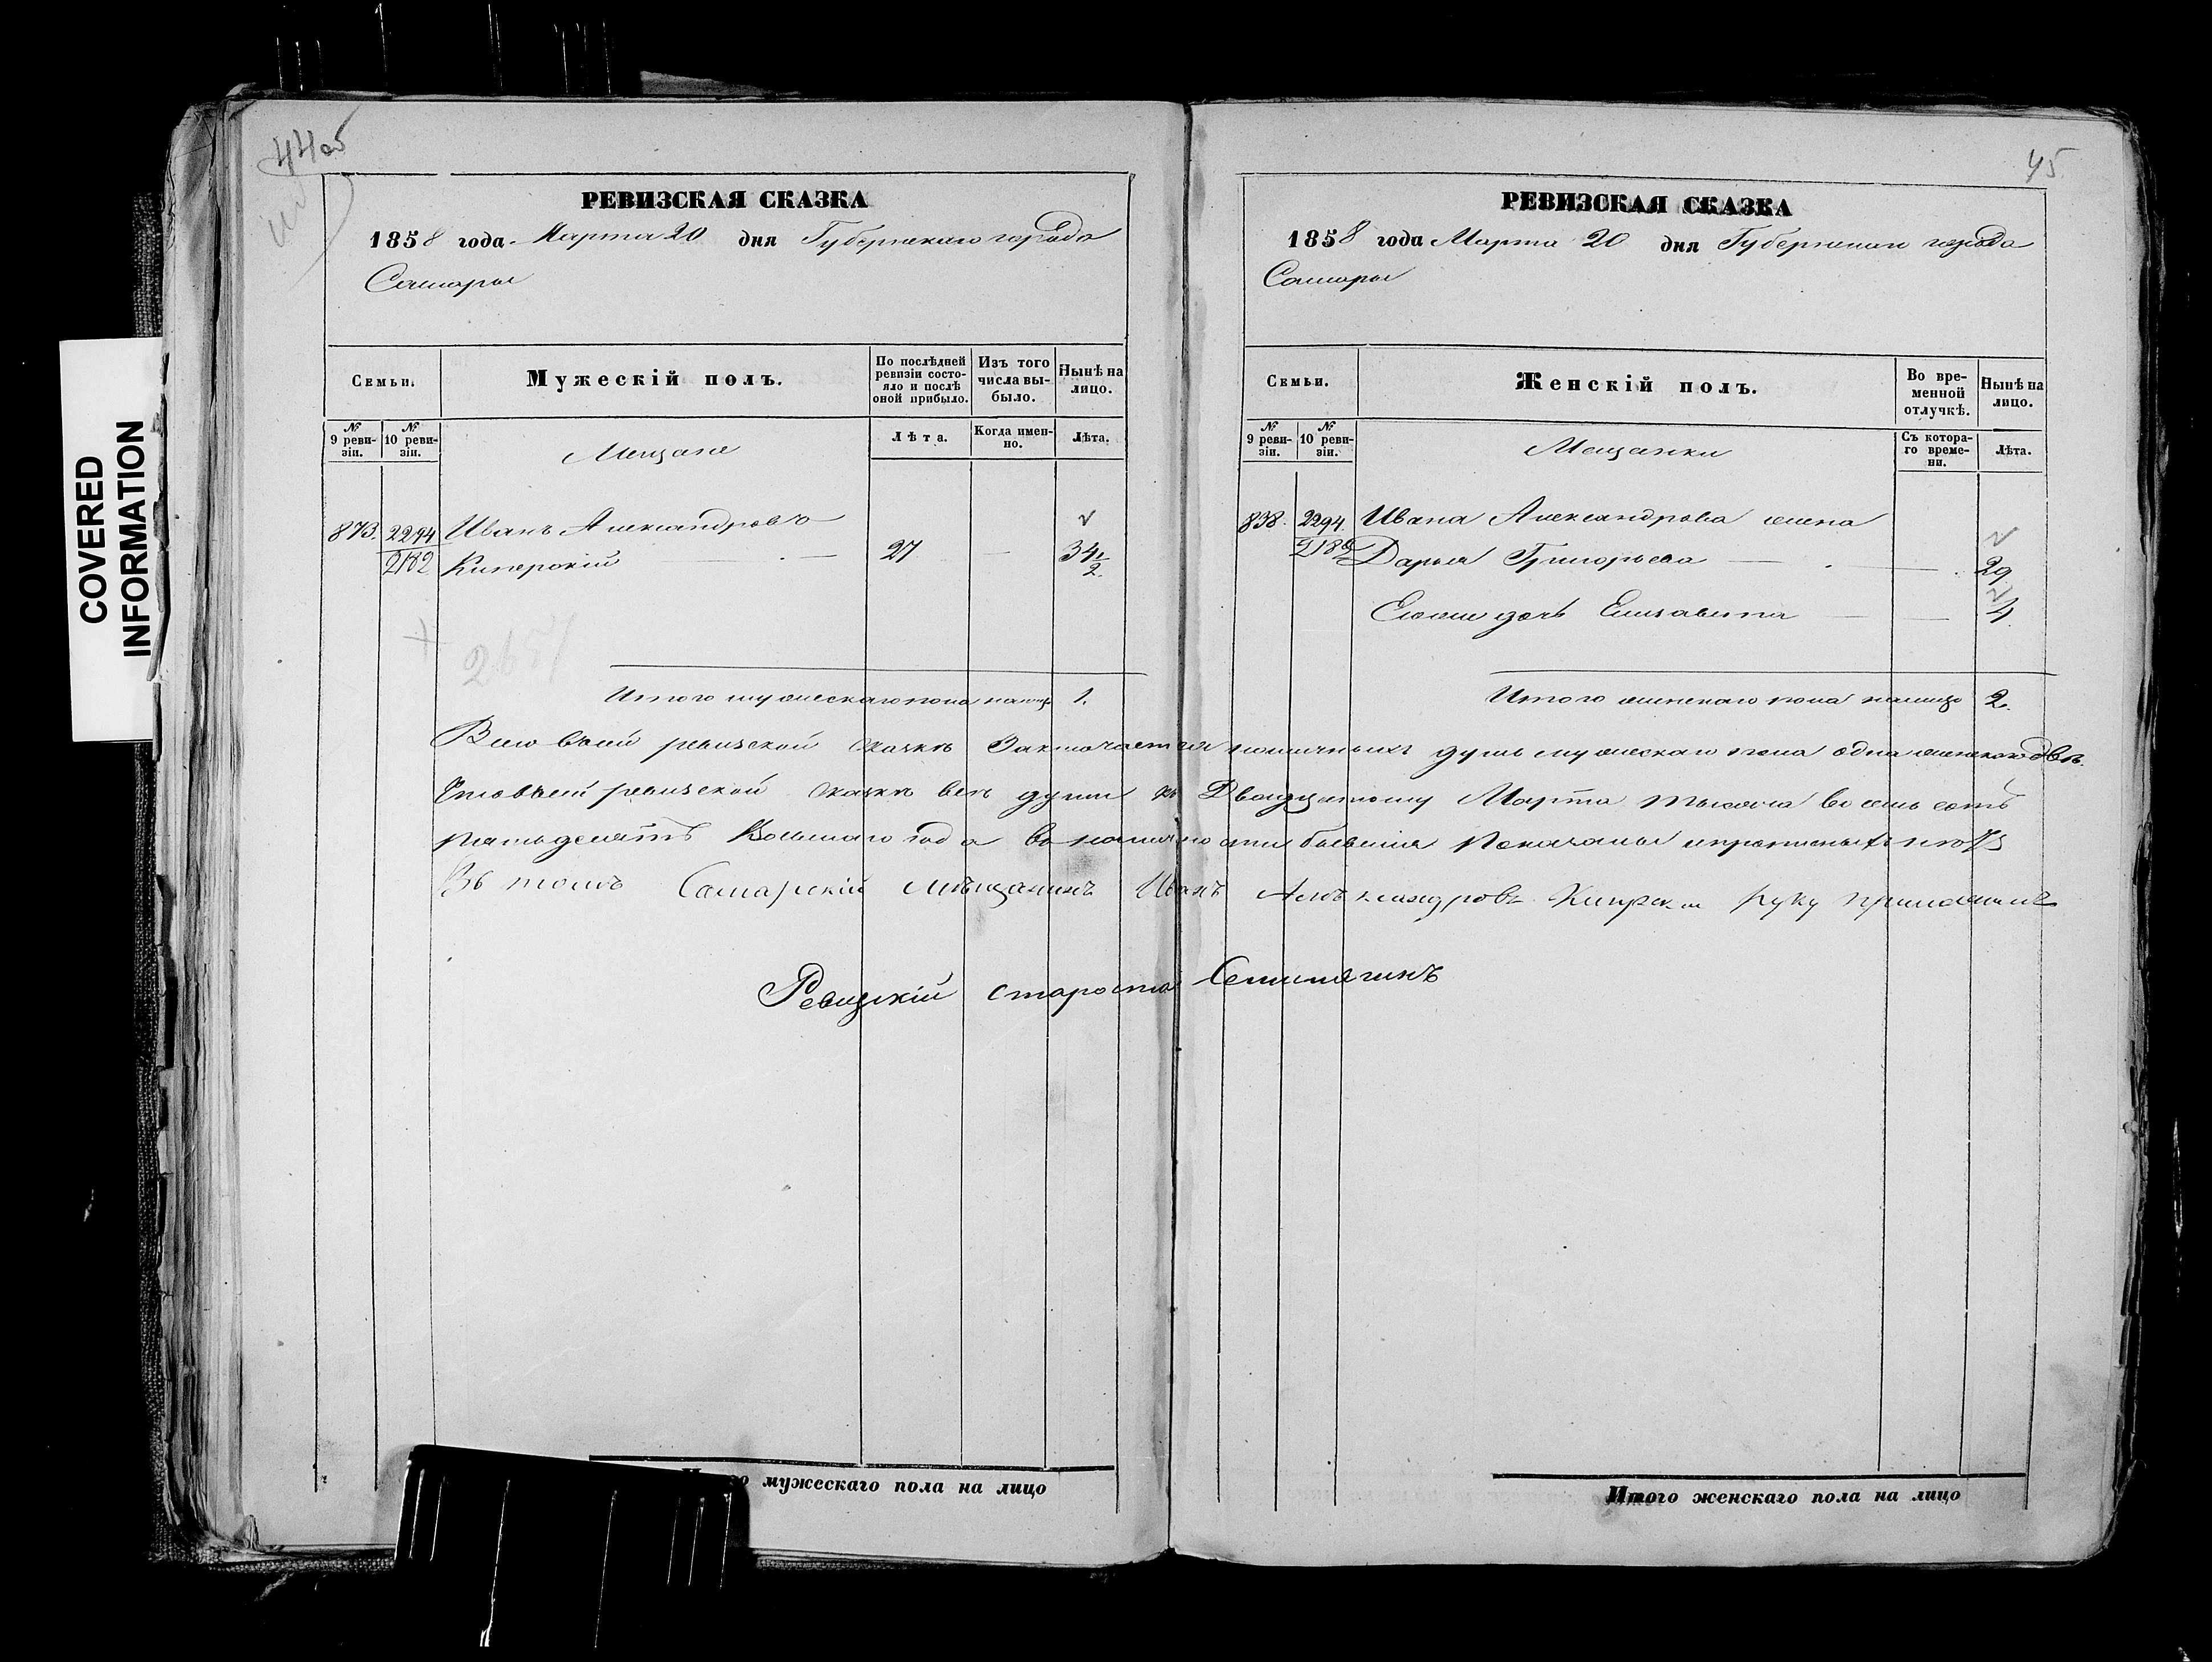 COVERED
INFORMATION
44об
РЕВИЗСКАЯ СКАЗКА
1858 года Марта 20 дня Губернскаго города
Самары
Семьи.
Мужескій полъ.
По послѣдней ревизіи состояло и послѣ оной прибыло.
Изъ того числа выбыло.
Нынѣ на лицо.
№ 9 ревизіи.
№ 10 ревизіи.
Мещане
Лѣта.
Когда именно.
Лѣта.
873. 2294 Иванъ Александровъ
2182 Киперскій 27 — 34 1/2.
2651
Итого мужескаго пола налицо 1.
45.
РЕВИЗСКАЯ СКАЗКА
1858 года Марта 20 дня Губернскаго города
Самары
Семьи.
Женскій полъ.
Во временной отлучкѣ.
Нынѣ на лицо.
№ 9 ревизіи.
№ 10 ревизіи.
Мещанки
Съ котораго времени.
Лѣта.
838. 2294. Ивана Александрова жена
2182 Дарья Григорьева — — 29
Ея дочь Елизавета — — 4
Итого женскаго пола налицо 2.
ревизской сказкѣ Заключается наличныхъ душъ мужескаго пола одна женскаго двѣ.
ревизской сказкѣ всѣ души къ Двадцатому Марта тысяча восемь сотъ
пятьдесятъ Восьмаго года
Въ томъ Самарскій мѣщанинъ Иванъ Александровъ Киперскій руку приложилъ
Ревизскій староста
Итого мужескаго пола на лицо
Итого женскаго пола на лицо